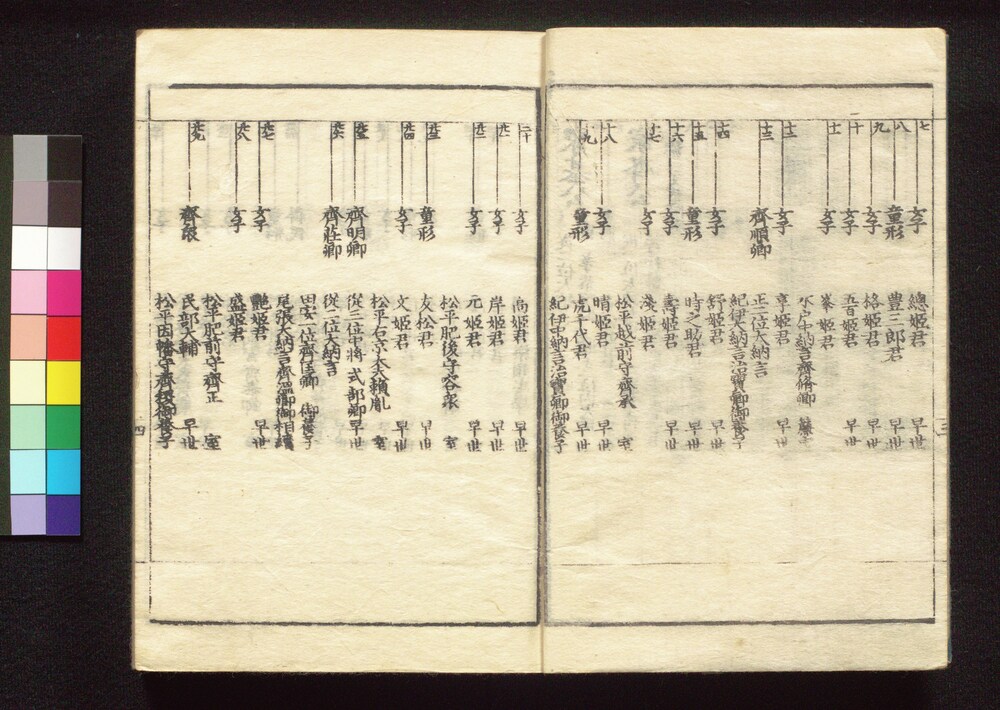 七 女子 總姫君 早世
八 童形 豊三郎君 早世
九 女子 格姫君 早世
十 女子 五百姫君 早世
十一 女子 峯姫君
水戸中納言齊脩卿 簾中
十二 女子 亨姫君 早世
十三 齊順卿 正二位大納言
紀伊大納言治寶卿御養子
十四 女子 舒姫君 早世
十五 童形 時之助君 早世
十六 女子 壽姫君 早世
十七 女子 淺姫君
松平越前守齊承 室
十八 女子 晴姫君 早世
十九 童形 虎千代君 早世
紀伊中納言治寶卿御養子
二十 女子 高姫君 早世
廿一 女子 岸姫君 早世
廿二 女子 元姫君
松平肥後守容衆 室
廿三 童形 友松君 早世
廿四 女子 文姫君
松平右京大夫頼胤 室
廿五 齊明卿 從三位中將式部卿 早世
廿六 齊莊卿 從二位大納言
田安一位齊匡卿 御養子
尾張大納言齊温卿御相續
廿七 女子 艶姫君 早世
廿八 女子 盛姫君
松平肥前守齊正 室
廿九 齊衆 民部大輔 早世
松平因幡守齊稷御養子
三
四